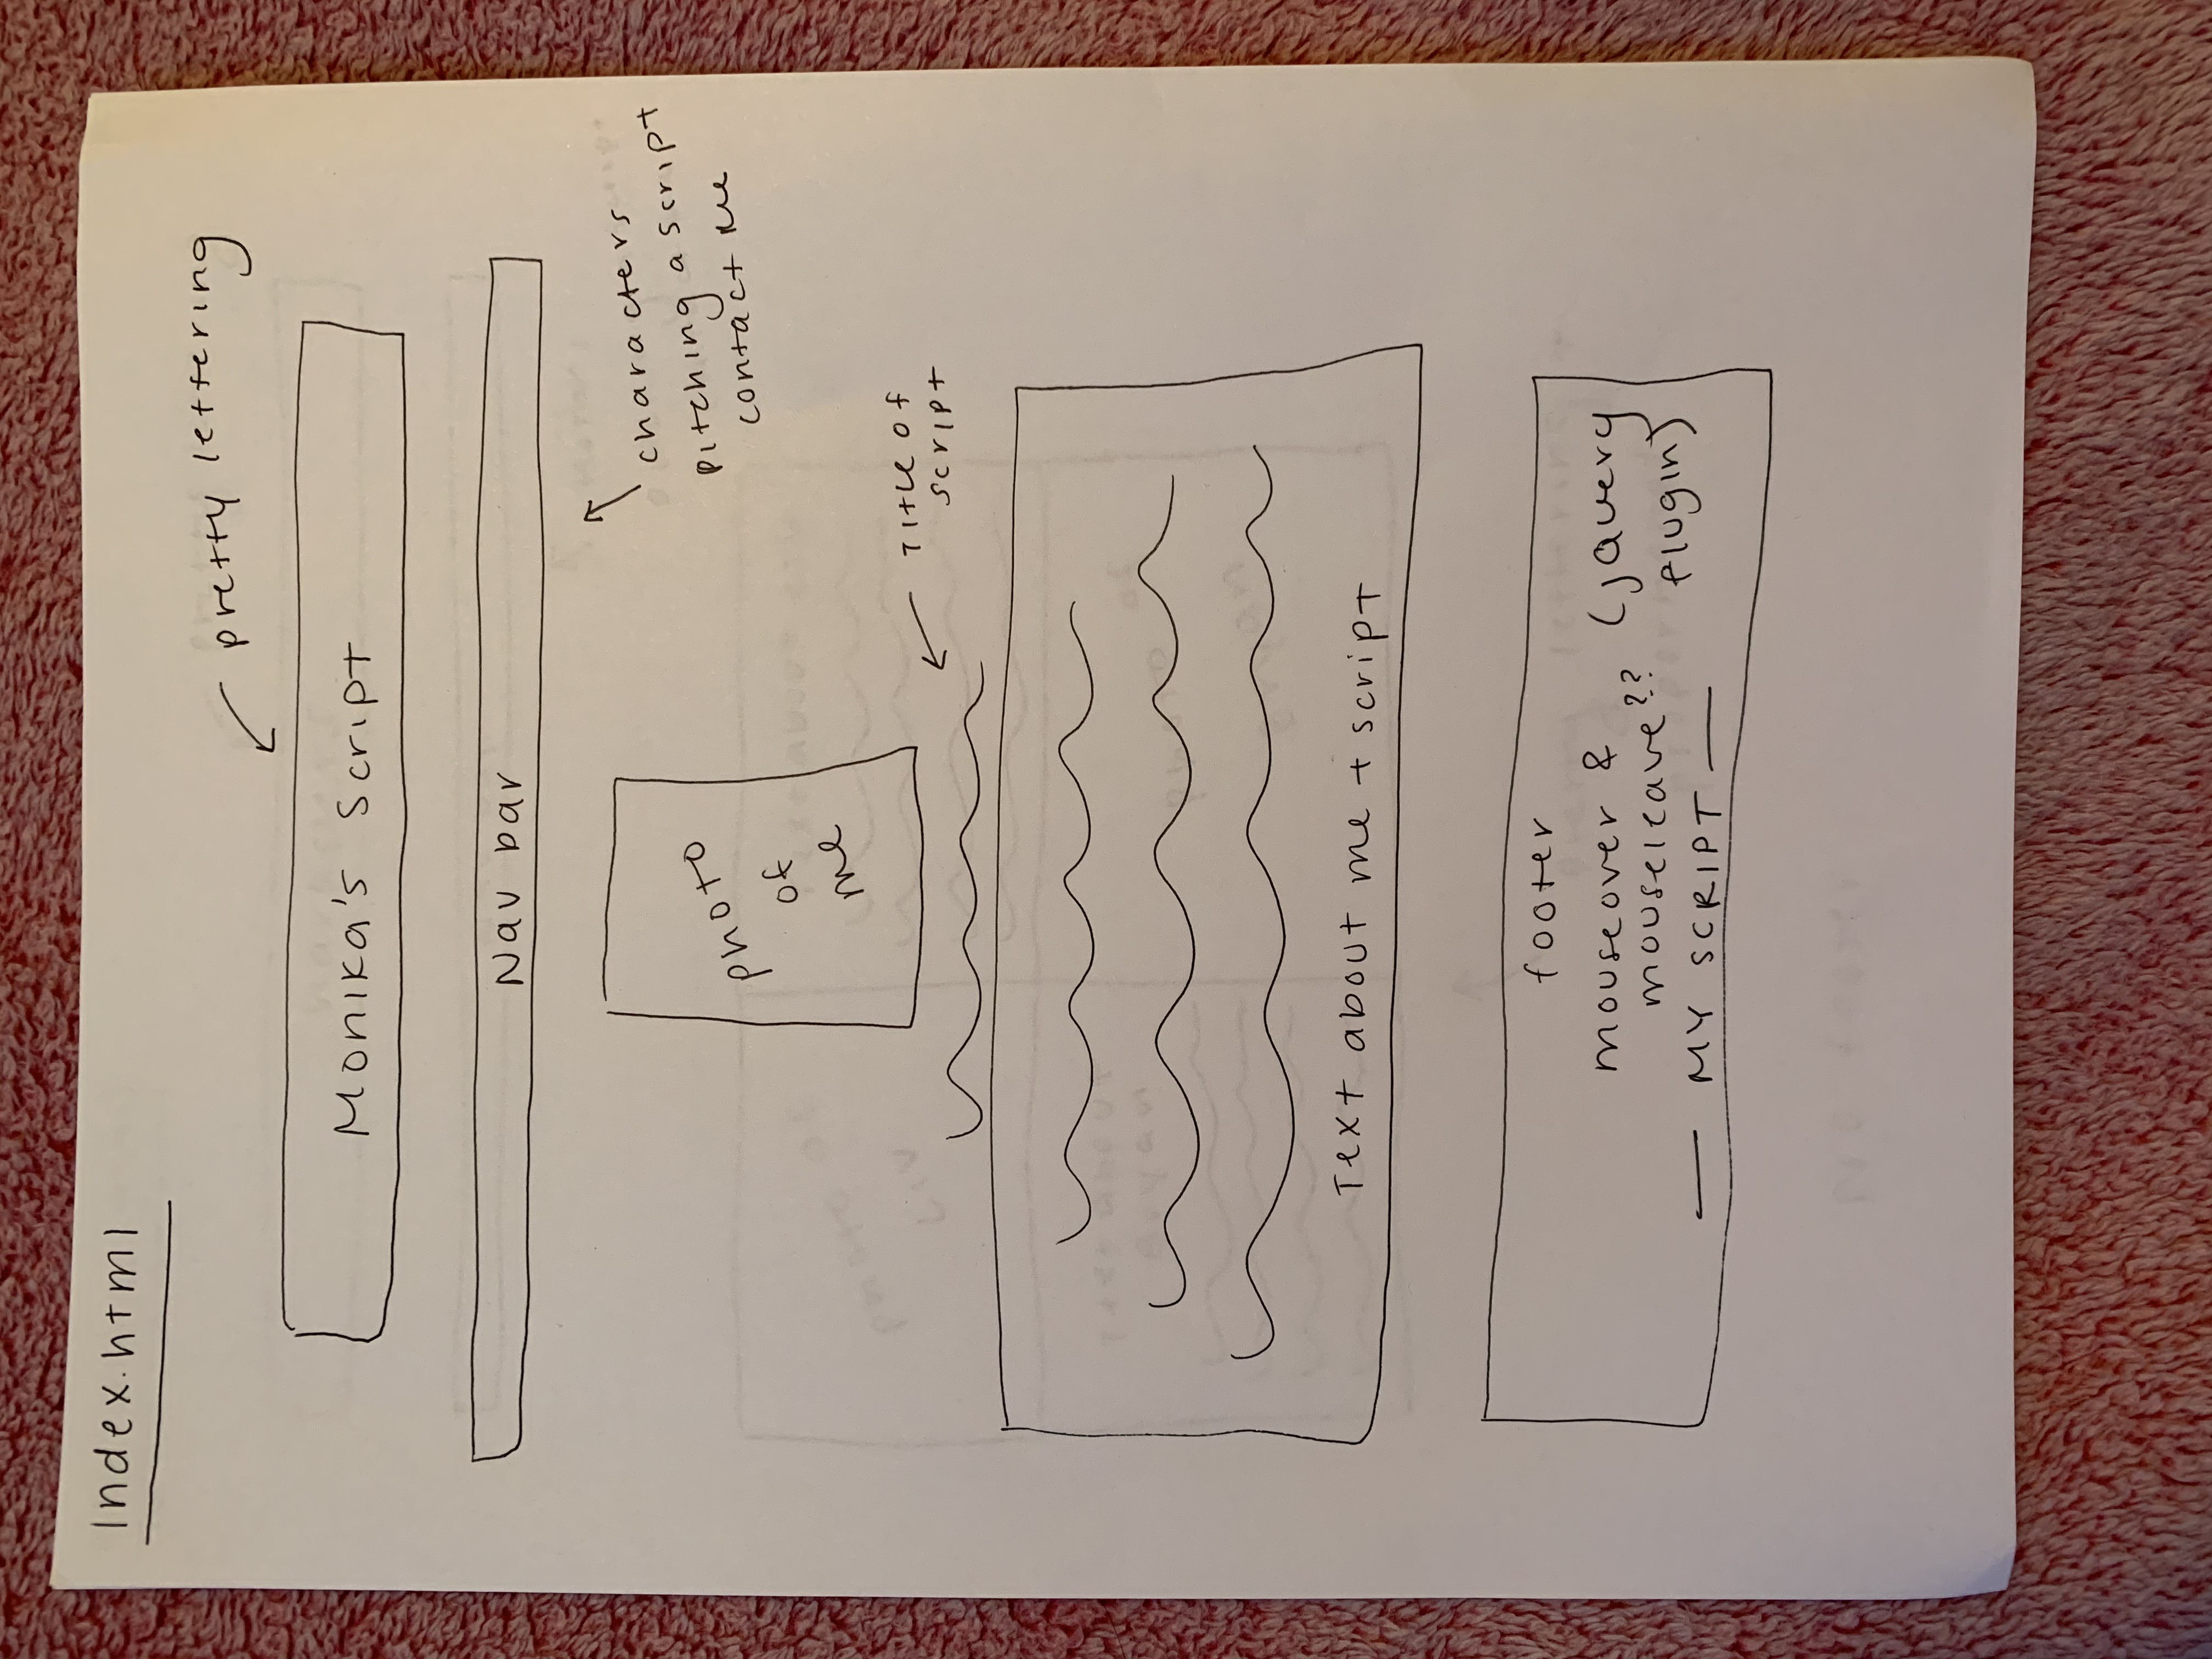 Index.html
pretty lettering
Monika's Script
Nav bar
characters
pitching a script
contact me
photo
of
me
Title of
script
Text about me + script
footer
mouseover &
mouseleave??
(jQuery
plugin)
— MY SCRIPT —